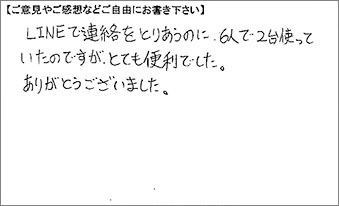 【ご意見やご感想などご自由にお書き下さい】
LINEで連絡をとりあうのに、6人で2台使って
いたのですが、とても便利でした。
ありがとうございました。